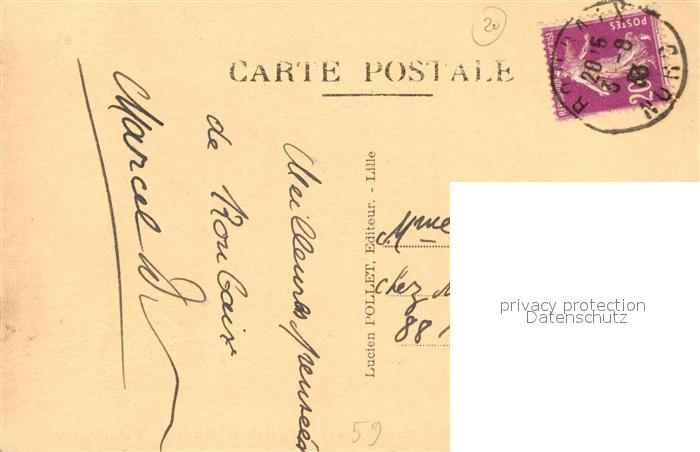 20
CARTE POSTALE
POSTES
20 15
3 - 8
NORD
20c
Meilleures Pensées
de Roubaix
Marcel W
Lucien POLLET, Editeur. - Lille
Mme
chez M
88
privacy protection
Datenschutz
59